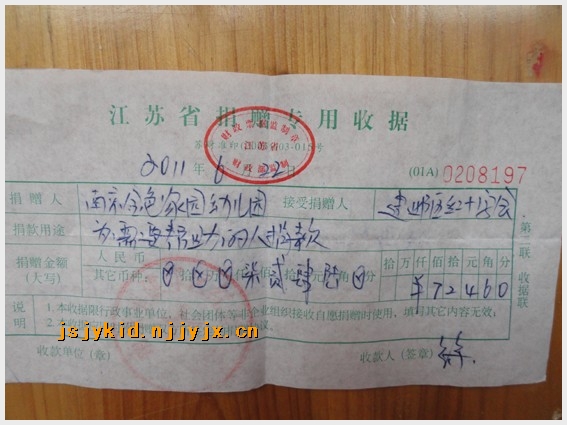 江苏省捐赠专用收据
财政票据监制章
江苏省
财政部监制
2011年6月22日
(01A) 0208197
捐赠人 南京金色家园幼儿园 接受捐赠人 建邺区红十字会
捐款用途 为需要帮助的人捐款
捐赠金额(大写) 人民币 其它币种: 柒 贰 肆 陆 0 分 十万仟佰拾元角分 ¥72460
第二联 收据联
说明 1.本收据限行政事业单位、社会团体等非企业组织接收自愿捐赠时使用，填写其它内容无效;
jsjykid.njjyjx.cn
收款单位(章) 收款人(签章)